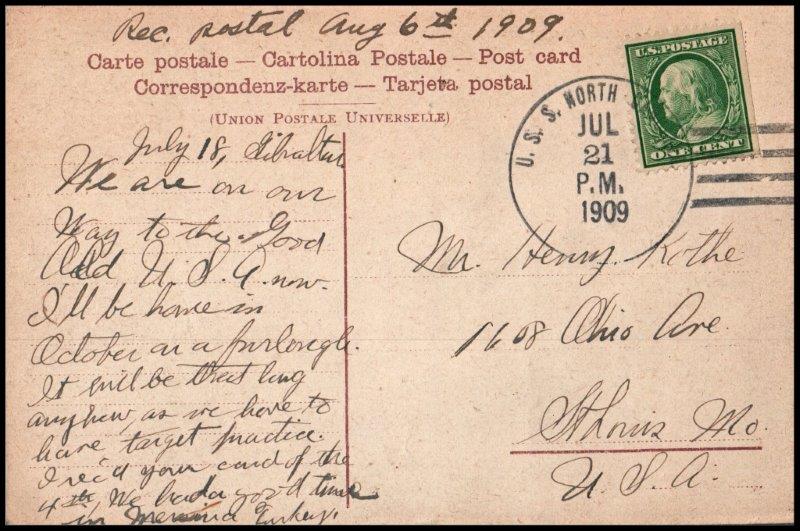 Rec. postal Aug 6th 1909.
Carte postale — Cartolina Postale — Post card
Correspondenz-karte — Tarjeta postal
(Union Postale Universelle)
July 18, Gibraltar
We are on our
Way to the Good
Old U.S.A. now.
I'll be home in
October on a furlough.
It will be that long
anyhow, as we have to
have target practice.
I rec'd your card of the
4th. We had a good time
in Turkey.
U.S. POSTAGE
ONE CENT
U. S. S. NORTH
JUL
21
P.M.
1909
Mr. Henry Kothe
1608 Ohio Ave.
St Louis Mo.
U.S.A.